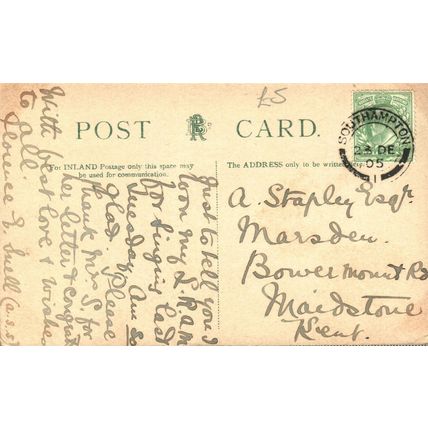 £5
POST CARD.
For INLAND Postage only this space may
be used for communication.
The ADDRESS only to be written
SOUTHAMPTON
DE
05
1
Just to tell you I
won my L.R.A.M.
for Singing last
Tuesday. Am so
glad. Please
thank Mrs S. for
her letter & congrat
With best love & wishes
to all.
Florence E. Snell (A.S.S.)
A. Stapley Esqr.
Marsden.
Bower Mount Rd
Maidstone
Kent.